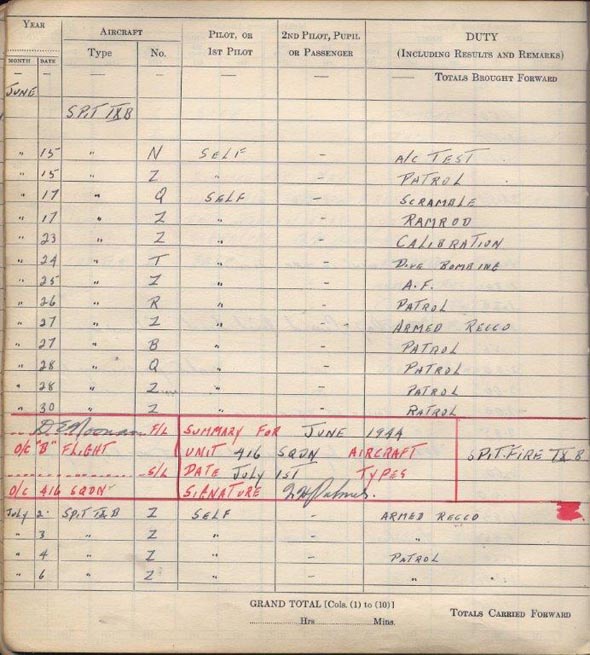 YEAR AIRCRAFT PILOT, OR 2ND PILOT, PUPIL DUTY
MONTH DATE Type No. 1ST PILOT OR PASSENGER (INCLUDING RESULTS AND REMARKS)
— — — — — — — TOTALS BROUGHT FORWARD
JUNE
SPIT IXB
" 15 " N SELF – A/C TEST
" 15 " Z " – PATROL
" 17 " Q SELF – SCRAMBLE
" 17 " Z " – RAMROD
" 23 " Z " – CALIBRATION
" 24 " T " – DIVE BOMBING
" 25 " Z " – A.F.
" 26 " R " – PATROL
" 27 " Z " – ARMED RECCO
" 27 " B " – PATROL
" 28 " Q " – PATROL
" 28 " Z " – PATROL
" 30 " Z " – PATROL
D.E. Noonan F/L SUMMARY FOR JUNE 1944
O/C "B" FLIGHT UNIT 416 SQDN AIRCRAFT SPITFIRE IX B
S/L DATE July 1ST TYPES
O/C 416 SQDN SIGNATURE
July 2 SPIT IXB Z SELF – ARMED RECCO
" 3 " Z " – "
" 4 " Z " – PATROL
" 6 " Z " – "
GRAND TOTAL [Cols. (1) to (10)] TOTALS CARRIED FORWARD
Hrs Mins.